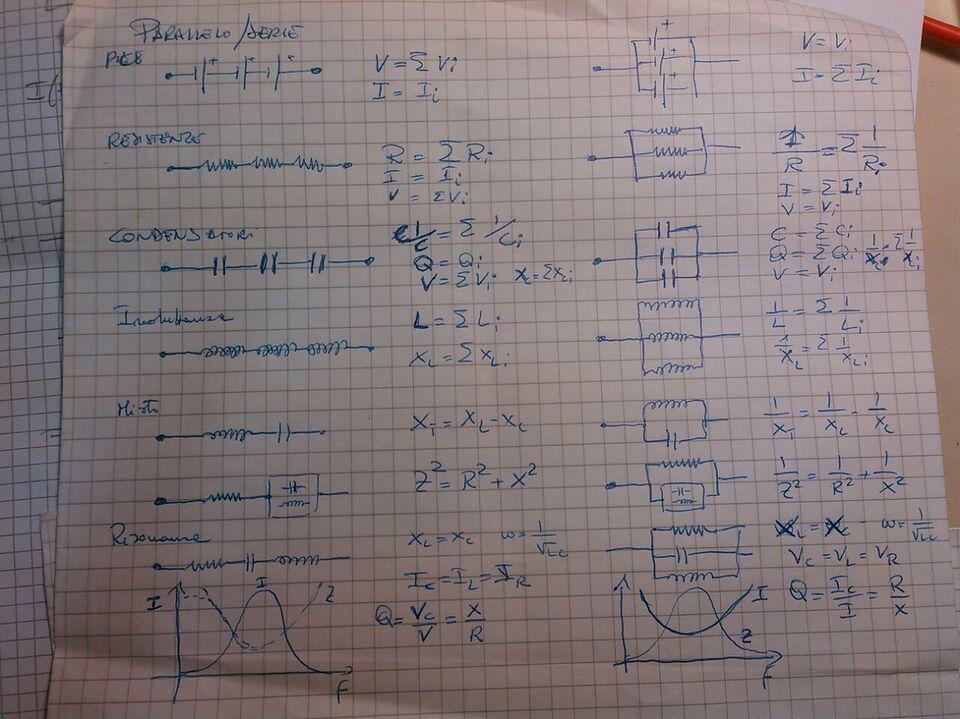 PARALLELO/SERIE
PILE
V = Σ Vi
I = Ii
V = Vi
I = Σ Ii
RESISTENZE
R = Σ Ri
I = Ii
V = ΣVi
1/R = Σ 1/Ri
I = Σ Ii
V = Vi
CONDENSATORI
1/C = Σ 1/Ci
Q = Qi
V = Σ Vi Xc = ΣXci
C = Σ Ci
Q = Σ Qi 1/Xc = Σ 1/Xci
V = Vi
Induttanze
L = Σ Li
XL = Σ XLi
1/L = Σ 1/Li
1/XL = Σ 1/XLi
Misto
XT = XL - XC
1/XT = 1/XL - 1/XC
Z² = R² + X²
1/Z² = 1/R² + 1/X²
Risonanza
XL = XC ω = 1/√LC
IC = IL = IR
Q = VC/V = X/R
XL = XC - ω = 1/√LC
VC = VL = VR
Q = IC/I = R/X
I I Z
F
I
Z
F